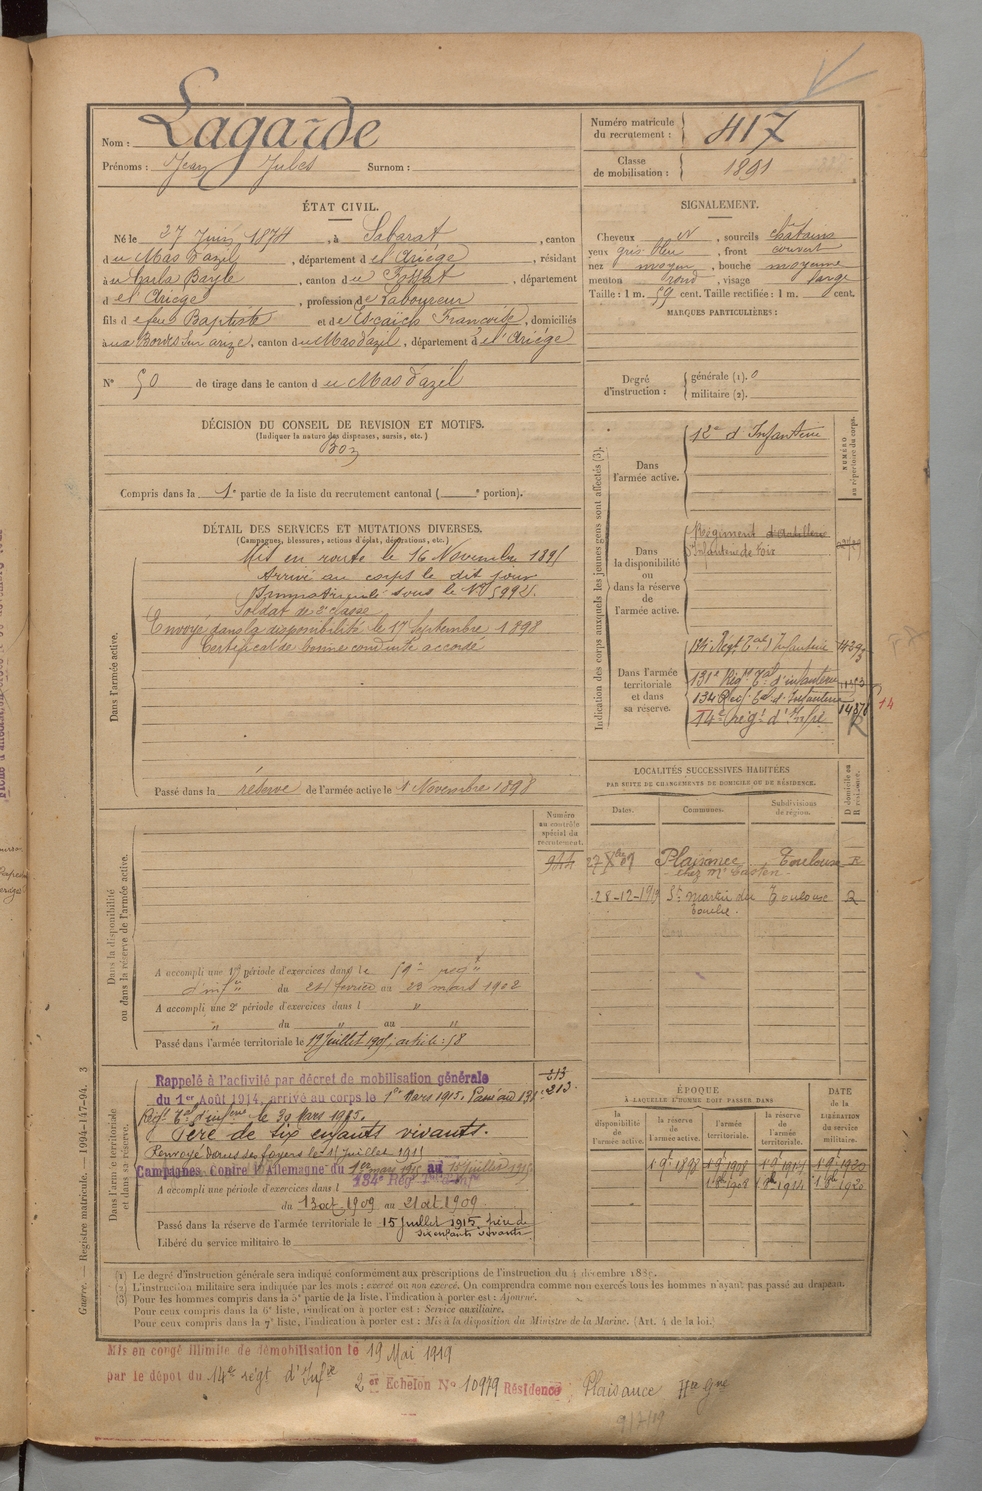 Nom : Lagarde
Prénoms : Jean Jules Surnom :
Numéro matricule du recrutement : 417
Classe de mobilisation : 1891
ÉTAT CIVIL.
Né le 27 Juin 1874, à Sabarat, canton
du Mas d'azil, département de l'Ariège, résidant
à Carla Bayle, canton du Fossat, département
d e l'Ariège, profession de Laboureur
fils d e feu Baptiste et de Escaich Françoise, domiciliés
à aux Bordes sur arize, canton du Mas dazil, département d e l'Ariège
N° 50 de tirage dans le canton d u Mas d'azil
SIGNALEMENT.
Cheveux N, sourcils châtains
yeux gris bleu, front couvert
nez moyen, bouche moyenne
menton rond, visage large
Taille : 1 m. 59 cent. Taille rectifiée : 1 m. cent.
MARQUES PARTICULIÈRES :
Degré d'instruction : générale (1). 0
militaire (2).
DÉCISION DU CONSEIL DE REVISION ET MOTIFS.
(Indiquer la nature des dispenses, sursis, etc.)
Bon
Compris dans la 1e partie de la liste du recrutement cantonal ( e portion).
DÉTAIL DES SERVICES ET MUTATIONS DIVERSES.
(Campagnes, blessures, actions d'éclat, décorations, etc.)
Dans l'armée active.
Mis en route le 16 Novembre 189
Arrivé au corps le dit jour
Immatriculé sous le N° 5992.
Soldat de 2e classe
Envoyé dans la disponibilité le 17 Septembre 1898
Certificat de bonne conduite accordé
Passé dans la réserve de l'armée active le 1 Novembre 1898
Indication des corps auxquels les jeunes gens sont affectés (3).
NUMÉRO au répertoire du corps.
Dans l'armée active.
12e d'Infanterie
Dans la disponibilité ou dans la réserve de l'armée active.
Régiment d'Artillerie
Infanterie de Foix
Dans l'armée territoriale et dans sa réserve.
134 Regt Tal d'Infanterie
131e Régt Tal d'infanterie
134 Reg. Tal d'Infanterie
14e régt d'Infie
14
R
LOCALITÉS SUCCESSIVES HABITÉES
PAR SUITE DE CHANGEMENTS DE DOMICILE OU DE RÉSIDENCE.
Dates. Communes. Subdivisions de région. D domicile ou R résidence.
27 Xbre 09 Plaisance Toulouse R
chez Mr
28-12-1919 St Martin du Touche. Toulouse R
Dans la disponibilité ou dans la réserve de l'armée active.
Numéro au contrôle spécial du recrutement.
944
A accompli une 1re période d'exercices dans le 59e regt
d'infie du 24 fevrier au 23 mars 1902
A accompli une 2e période d'exercices dans l "
" du " au "
Passé dans l'armée territoriale le
Dans l'armée territoriale et dans sa réserve.
213
213
Rappelé à l'activité par décret de mobilisation générale
du 1er Août 1914, arrivé au corps le 1er Mars 1915. Passé au 131
Regt Tal d'infrie le 30 Mars 1915.
Père de six enfants vivants.
Renvoyé dans ses foyers le 15 Juillet 1915
Campagnes Contre l'Allemagne du 1er mars 1915 au 15 Juillet 1915
134e Rég
A accompli une période d'exercices dans l
du 13 oct 1909 au 21 oct 1909
Passé dans la réserve de l'armée territoriale le 15 Juillet 1915 père de
six enfants vivants
Libéré du service militaire le
ÉPOQUE
À LAQUELLE L'HOMME DOIT PASSER DANS
la disponibilité de l'armée active. la réserve de l'armée active. l'armée territoriale. la réserve de l'armée territoriale.
DATE de la LIBÉRATION du service militaire.
1 9e 1898 1 9e 1908 1 9e 1914 1 9e 1920
1 8e 1908 1 8e 1914 1 8e 1920
(1) Le degré d'instruction générale sera indiqué conformément aux prescriptions de l'instruction du 4 décembre 1889.
(2) L'instruction militaire sera indiquée par les mots : exercé ou non exercé. On comprendra comme non exercés tous les hommes n'ayant pas passé au drapeau.
(3) Pour les hommes compris dans la 5e partie de la liste, l'indication à porter est : Ajourné.
Pour ceux compris dans la 6e liste, l'indication à porter est : Service auxiliaire.
Pour ceux compris dans la 7e liste, l'indication à porter est : Mis à la disposition du Ministre de la Marine. (Art. 4 de la loi.)
Mis en congé illimité de démobilisation le 19 Mai 1919
par le dépôt du 14e régt d'Infie
2er Echelon N° 10979 Résidence Plaisance Hte Gne
9/7/19
Guerre. — Registre matricule. — 1994-1147-94. 3